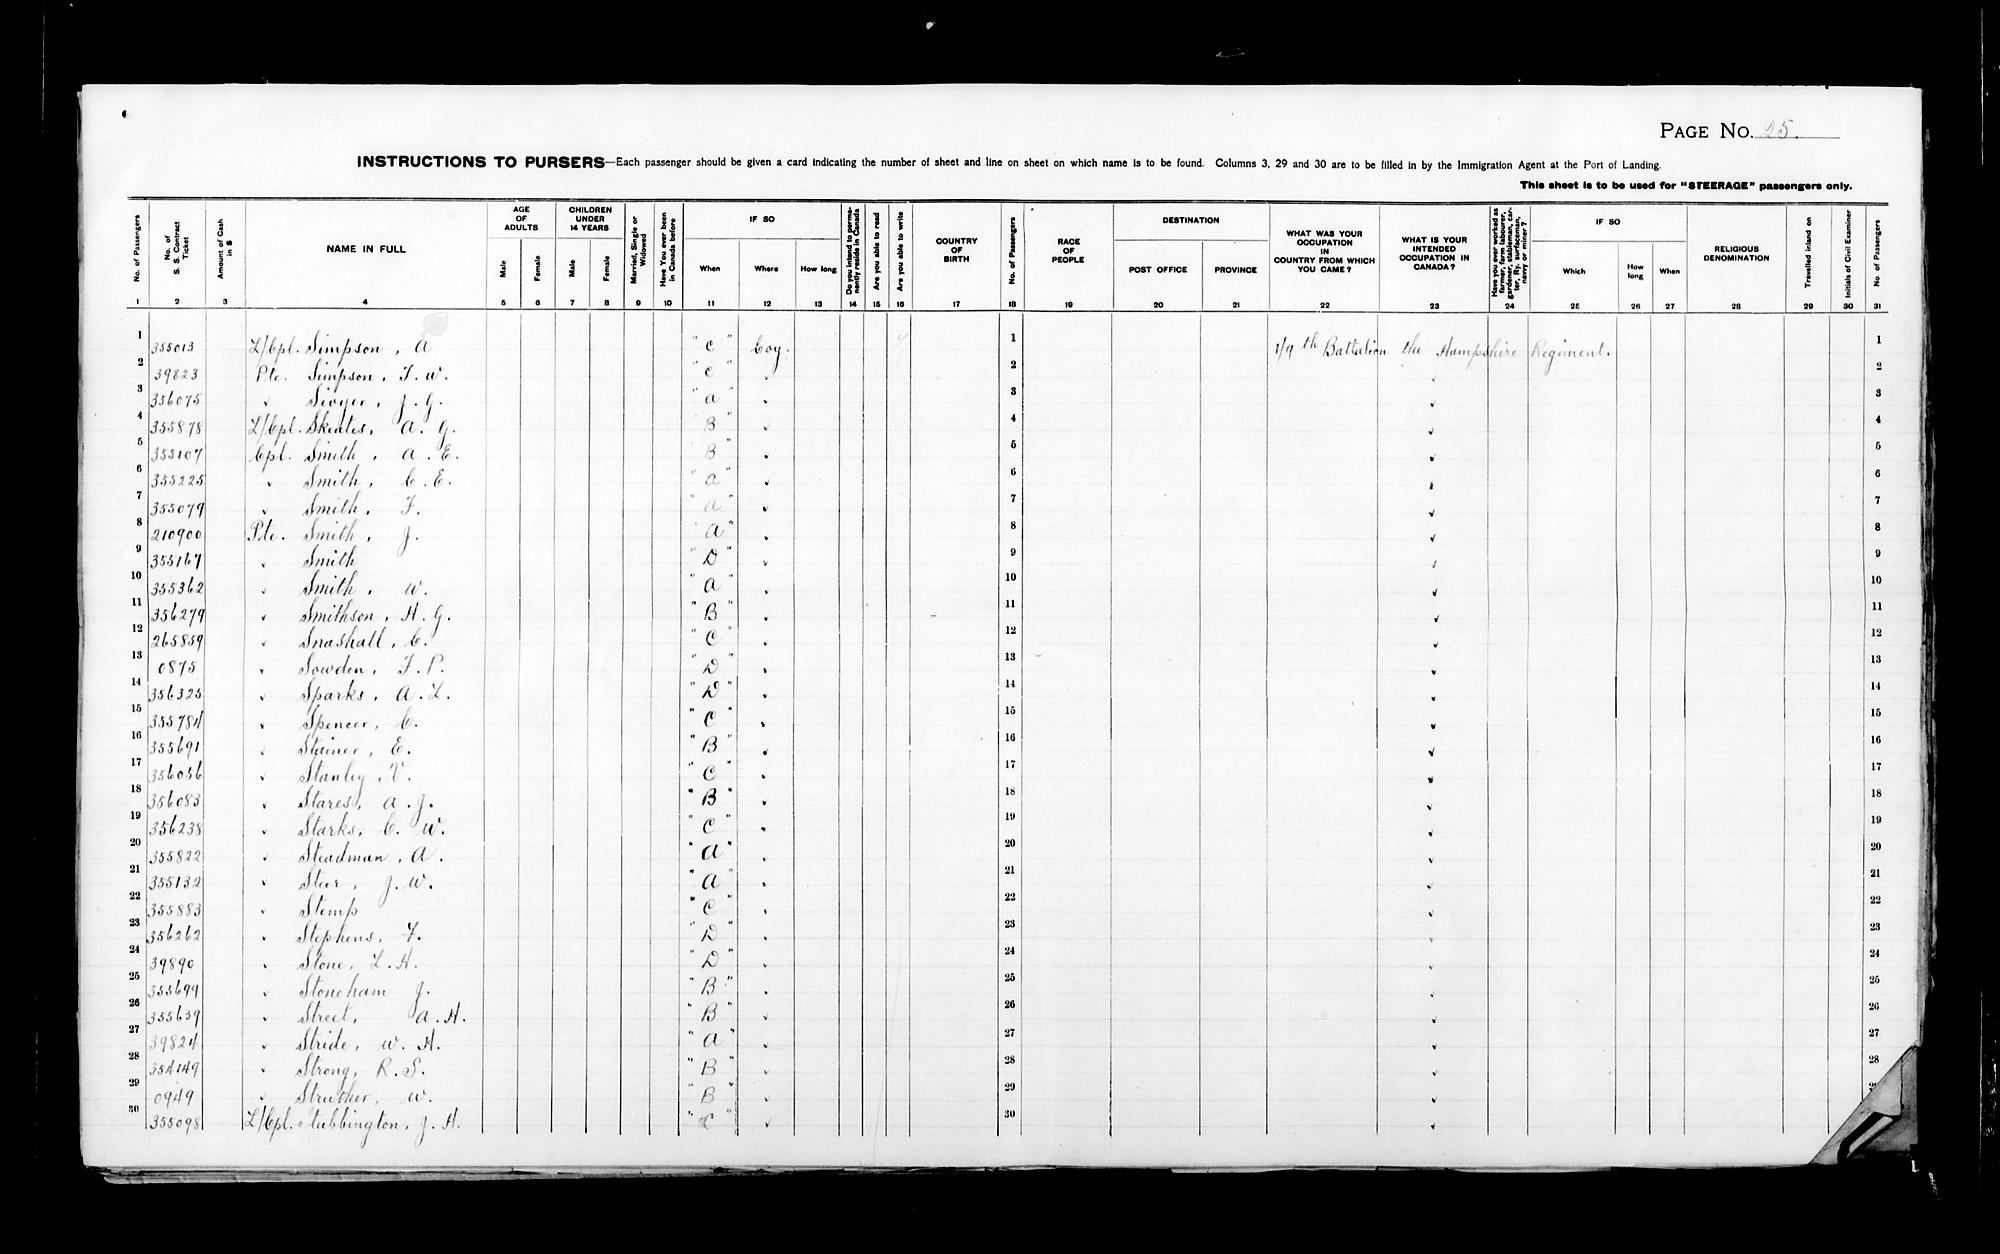 PAGE NO. 25.
INSTRUCTIONS TO PURSERS—Each passenger should be given a card indicating the number of sheet and line on sheet on which name is to be found. Columns 3, 29 and 30 are to be filled in by the Immigration Agent at the Port of Landing.
This sheet is to be used for "STEERAGE" passengers only.
No. of Passengers 1
No. of S. S. Contract Ticket 2
Amount of Cash in $ 3
NAME IN FULL 4
AGE OF ADULTS Male 5 Female 6
CHILDREN UNDER 14 YEARS Male 7 Female 8
Married, Single or Widowed 9
Have You ever been in Canada before 10
IF SO When 11 Where 12 How long 13
Do you intend to permanently reside in Canada 14
Are you able to read 15
Are you able to write 16
COUNTRY OF BIRTH 17
No. of Passengers 18
RACE OF PEOPLE 19
DESTINATION POST OFFICE 20 PROVINCE 21
WHAT WAS YOUR OCCUPATION IN COUNTRY FROM WHICH YOU CAME? 22
WHAT IS YOUR INTENDED OCCUPATION IN CANADA? 23
Have you ever worked as farmer, farm labourer, gardener, stableman, carter, Ry. surfaceman, navvy or miner? 24
IF SO Which 25 How long 26 When 27
RELIGIOUS DENOMINATION 28
Travelled inland on 29
Initials of Civil Examiner 30
No. of Passengers 31
1 355013 L/Cpl. Simpson, A "C" Coy. 1 1/9th Battalion the Hampshire Regiment. 1
2 39823 Pte. Simpson, F. W. "C" 2 2
3 356075 " Sivyer, J. G. "A" 3 3
4 355878 L/Cpl. Skeates, A. G. "B" 4 4
5 355107 Cpl. Smith, A. E. "B" 5 5
6 355225 " Smith, C. E. "A" 6 6
7 355079 " Smith, F. "A" 7 7
8 210900 Pte. Smith, J. "A" 8 8
9 355167 " Smith "D" 9 9
10 355362 " Smith, W. "A" 10 10
11 356279 " Smithson, H. G. "B" 11 11
12 265859 " Snashall, C. "C" 12 12
13 0875 " Sowden, F. P. "D" 13 13
14 356325 " Sparks, A. L. "D" 14 14
15 355784 " Spencer, C. "C" 15 15
16 355691 " Stainer, E. "B" 16 16
17 356056 " Stanley, V. "C" 17 17
18 356083 " Stares, A. J. "B" 18 18
19 356238 " Starks, C. W. "C" 19 19
20 355822 " Steadman, A. "A" 20 20
21 355132 " Steer, J. W. "A" 21 21
22 355883 " Stemp "C" 22 22
23 356262 " Stephens, F. "D" 23 23
24 39890 " Stone, L. H. "D" 24 24
25 355699 " Stoneham J. "B" 25 25
26 355639 " Street, A. H. "B" 26 26
27 39824 " Stride, W. H. "A" 27 27
28 354149 " Strong, R. S. "B" 28 28
29 0949 " Struther, W. "B" 29
30 355098 L/Cpl. Stubbington, J. H. "C" 30